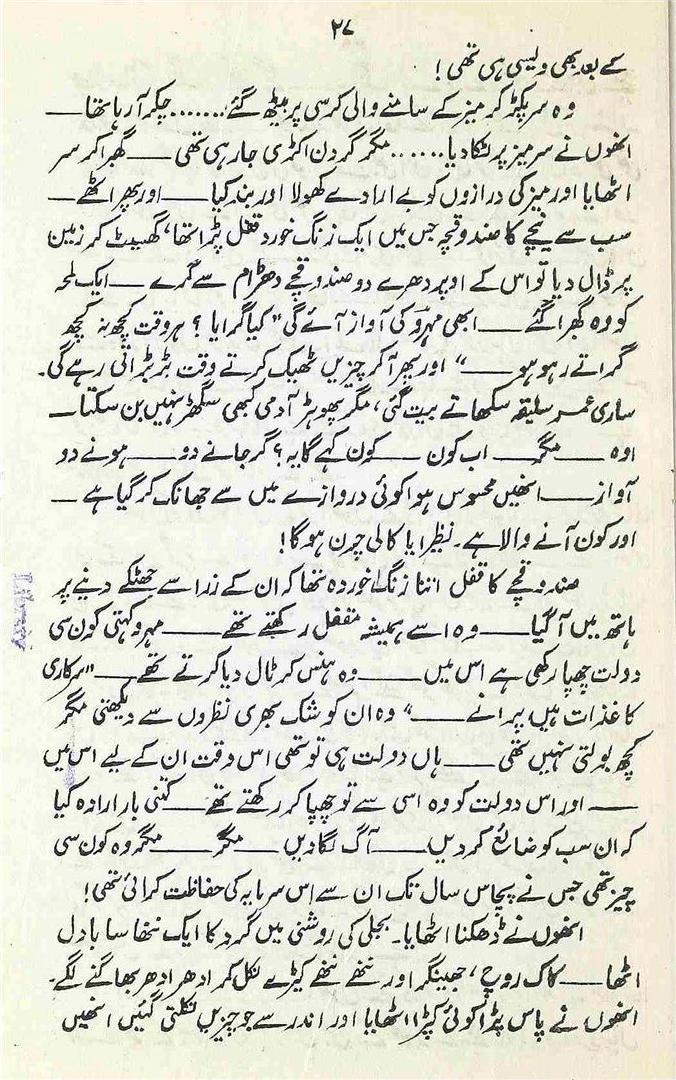 ۲۷
کے بعد بھی ویسی ہی تھی!
وہ سر پکڑ کر میز کے سامنے والی کرسی پر بیٹھ گئے.......چکر آ رہا تھا ــــ
انھوں نے سر میز پر لٹکا دیا......مگر گردن اکڑی جا رہی تھی ــــ گھبرا کر سر
اٹھایا اور میز کی درازوں کو بے ارادے کھولا اور بند کیا ــــ اور پھر اٹھے ــــ
سب سے نیچے کا صندوقچہ جس میں ایک زنگ خورد قفل پڑا تھا، گھسیٹ کر زمین
پر ڈال دیا تو اس کے اوپر دھرے دو صندوقچے دھڑام سے گرے ــــ ایک لمحہ
کو وہ گھبرا گئے ــــ ابھی مہرو کی آواز آئے گی "کیا گرایا ؟ ہر وقت کچھ نہ کچھ
گراتے رہو ہو ــــ" اور پھر آ کر چیزیں ٹھیک کرتے وقت بڑبڑاتی رہے گی۔
ساری عمر سلیقہ سکھاتے بیت گئی، مگر پھوہڑ آدمی کبھی سگھڑ نہیں بن سکتا ــــ
اوہ ــــ مگر ــــ اب کون ــــ کون کہے گا یہ ؟ گر جانے دو ــــ ہونے دو
آواز ــــ انھیں محسوس ہوا کوئی دروازے میں سے جھانک کر گیا ہے ــــ
اور کون آنے والا ہے۔ نظیرا یا کالی چرن ہو گا!
صندوقچے کا قفل اتنا زنگ خوردہ تھا کہ ان کے ذرا سے جھٹکے دینے پر
ہاتھ میں آ گیا ــــ وہ اسے ہمیشہ مقفل رکھتے تھے ــــ مہرو کہتی کون سی
دولت چھپا رکھی ہے اس میں ــــ وہ ہنس کر ٹال دیا کرتے تھے ــــ "سرکاری
کاغذات ہیں پرانے ــــ" وہ ان کو شک بھری نظروں سے دیکھتی مگر
کچھ بولتی نہیں تھی ــــ ہاں دولت ہی تو تھی اس وقت ان کے لیے اس میں
ــــ اور اس دولت کو وہ اسی سے تو چھپا کر رکھتے تھے ــــ کتنی بار ارادہ کیا
کہ ان سب کو ضائع کر دیں ــــ آگ لگا دیں ــــ مگر ــــ مگر وہ کون سی
چیز تھی جس نے پچاس سال تک ان سے اس سرمایہ کی حفاظت کرائی تھی!
انھوں نے ڈھکنا اٹھایا۔ بجلی کی روشنی میں گرد کا ایک ننھا سا بادل
اٹھا ــــ کاک روچ، جھینگر اور ننھے ننھے کیڑے نکل کر ادھر ادھر بھاگنے لگے۔
انھوں نے پاس پڑا کوئی کپڑا اٹھایا اور اندر سے جو چیزیں نکلتی گئیں انھیں